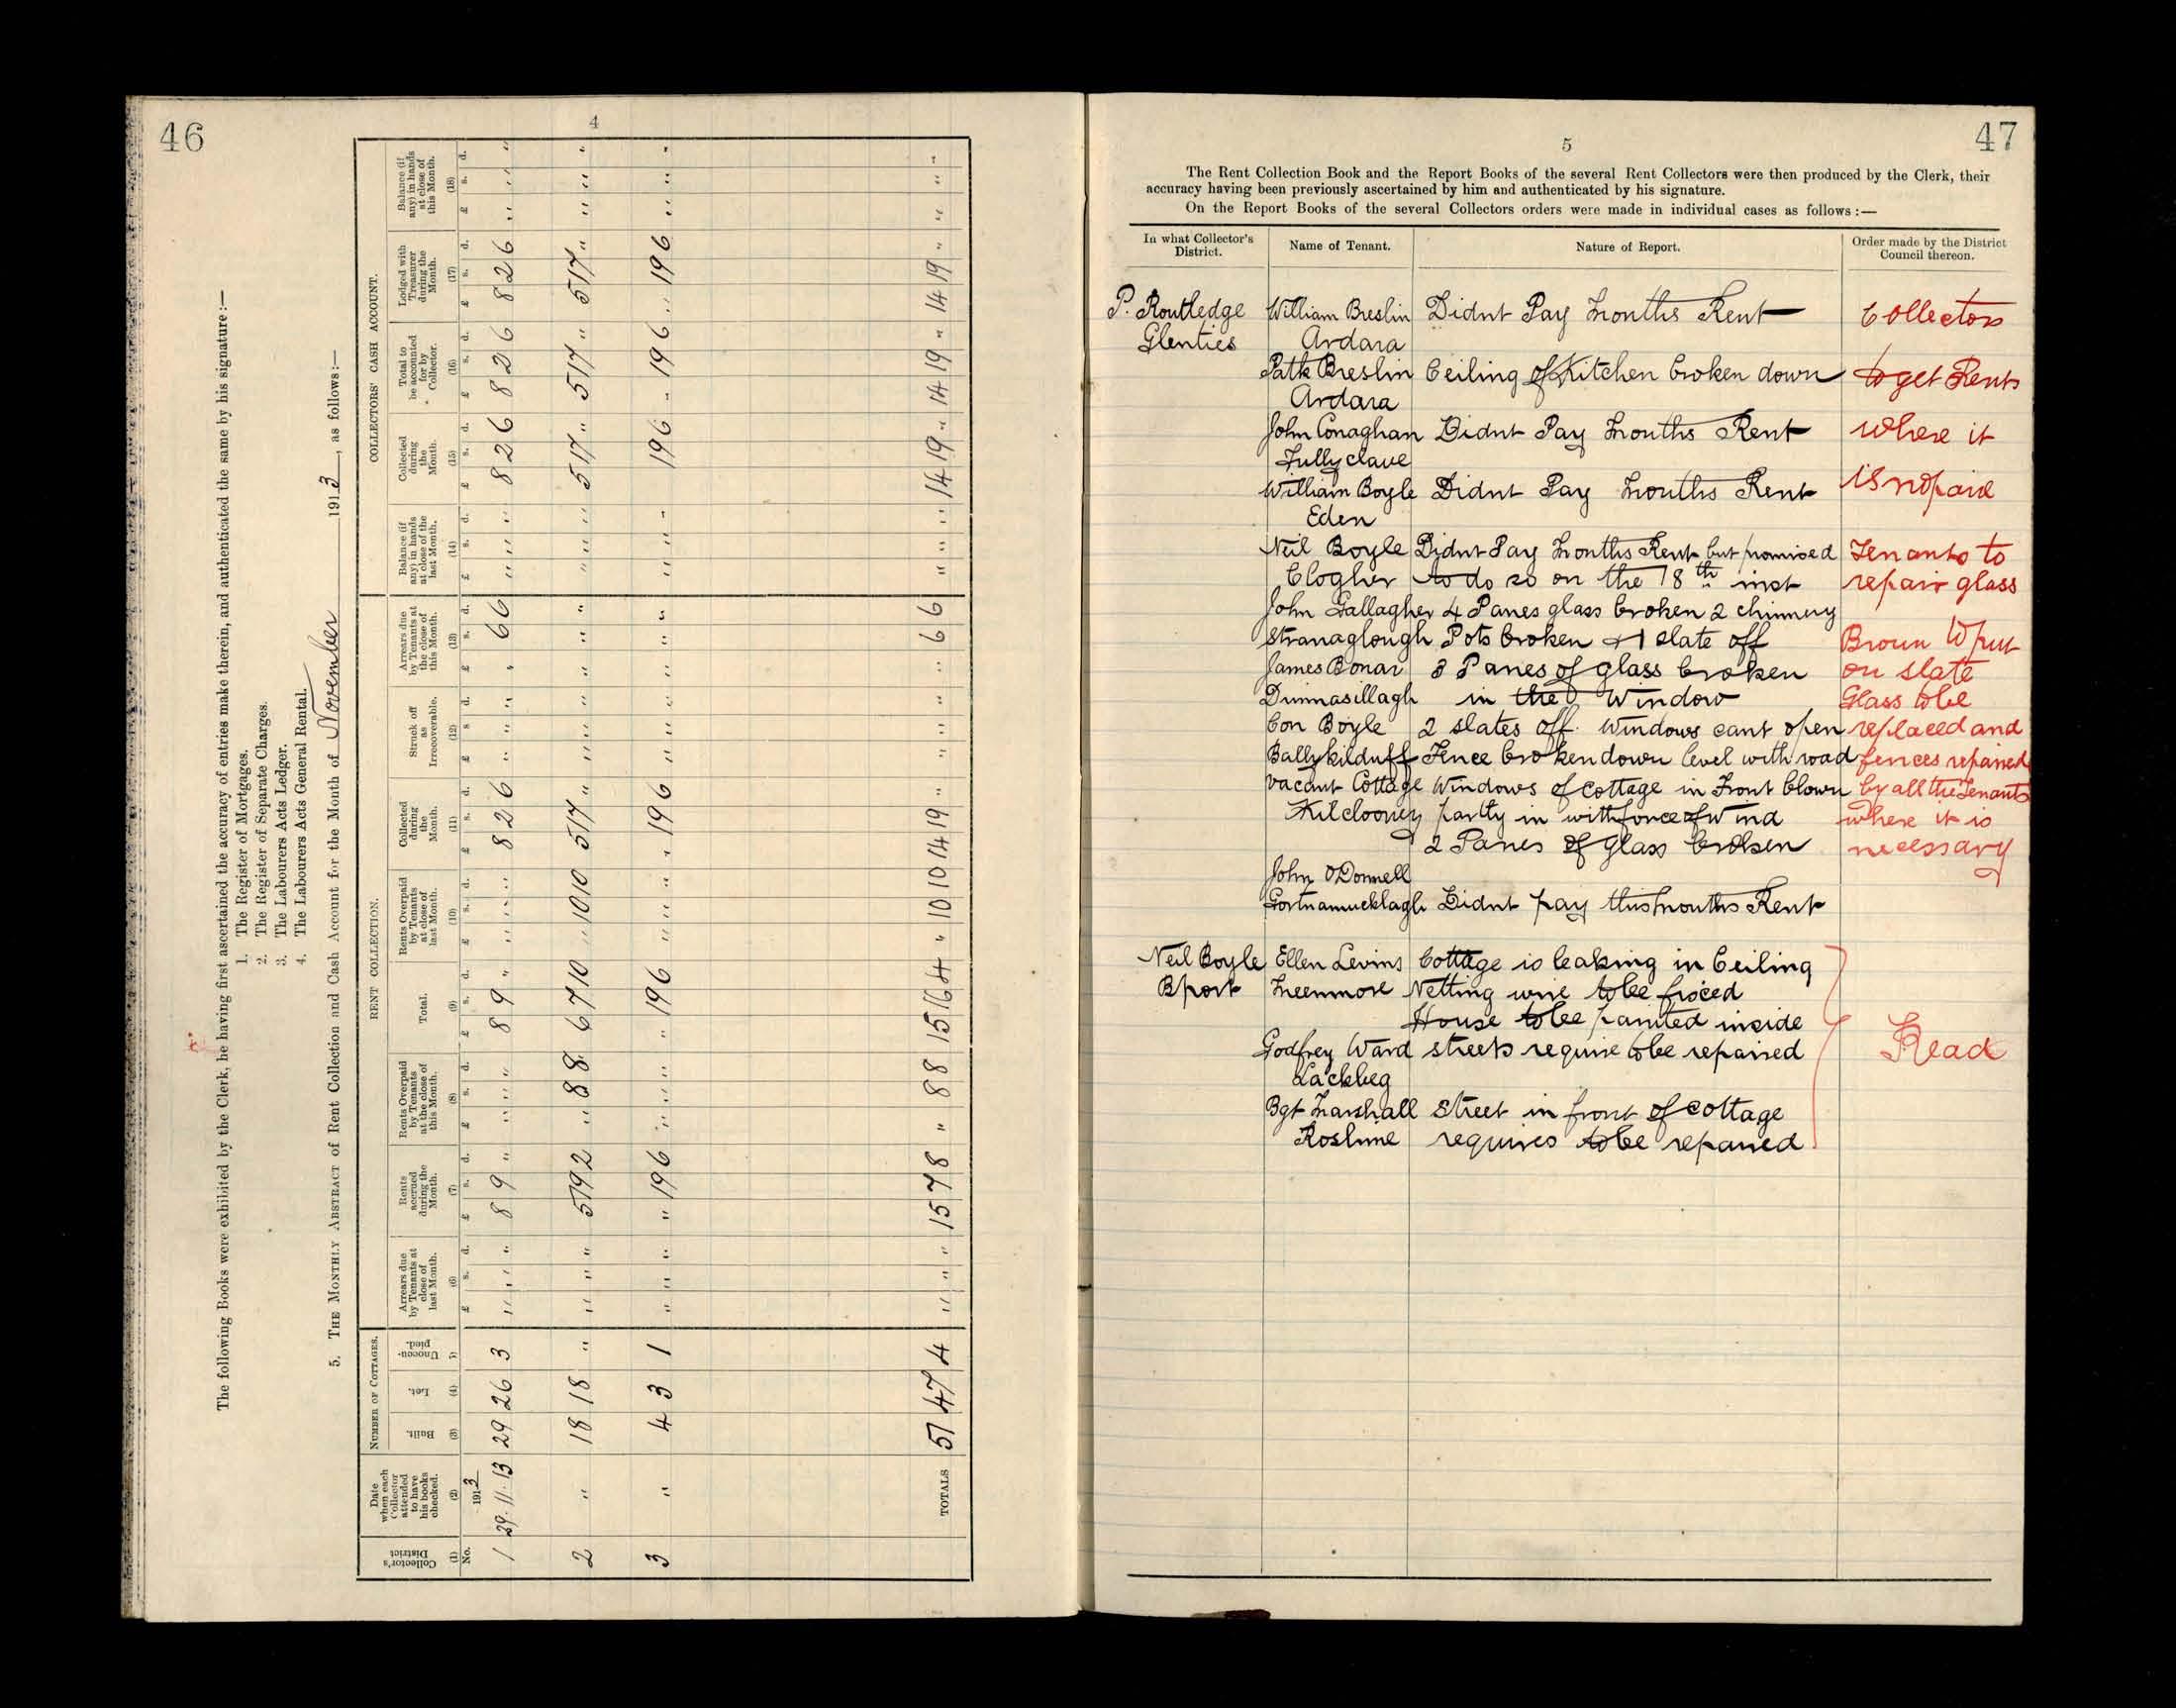 46
4
The following Books were exhibited by the Clerk, he having first ascertained the accuracy of entries make therein, and authenticated the same by his signature :—
1. The Register of Mortgages.
2. The Register of Separate Charges.
3. The Labourers Acts Ledger.
4. The Labourers Acts General Rental.
5. THE MONTHLY ABSTRACT of Rent Collection and Cash Account for the Month of November 1913, as follows:—
NUMBER OF COTTAGES. RENT COLLECTION. COLLECTORS' CASH ACCOUNT.
Collector's District (1) No.
Date when each Collector attended to have his books checked. (2) 1913
Built. (3)
Let. (4)
Unoccupied. (5)
Arrears due by Tenants at close of last Month. (6) £ s. d.
Rents accrued during the Month. (7) £ s. d.
Rents Overpaid by Tenants at the close of this Month. (8) £ s. d.
Total. (9) £ s. d.
Rents Overpaid by Tenants at close of last Month. (10) £ s. d.
Collected during the Month. (11) £ s. d.
Struck off as Irrecoverable. (12) £ s. d.
Arrears due by Tenants at the close of this Month. (13) £ s. d.
Balance (if any) in hands at close of the last Month. (14) £ s. d.
Collected during the Month. (15) £ s. d.
Total to be accounted for by Collector. (16) £ s. d.
Lodged with Treasurer during the Month. (17) £ s. d.
Balance (if any) in hands at close of this Month. (18) £ s. d.
1 29.11.13 29 26 3 " " " 8 9 " " " " 8 9 " " " " 8 2 6 " " " " 6 6 " " " 8 2 6 8 2 6 8 2 6 " " "
2 " 18 18 " " " " 5 19 2 " 8 8 6 7 10 " 10 10 5 17 " " " " " " " " " " 5 17 " 5 17 " 5 17 " " " "
3 " 4 3 1 " " " " 19 6 " " " " 19 6 " " " " 19 6 " " " " " " " " " 19 6 " 19 6 " 19 6 " " "
TOTALS 51 47 4 " " " 15 7 8 " 8 8 15 16 4 " 10 10 14 19 " " " " " 6 6 " " " 14 19 " 14 19 " 14 19 " " " "
47
5
The Rent Collection Book and the Report Books of the several Rent Collectors were then produced by the Clerk, their
accuracy having been previously ascertained by him and authenticated by his signature.
On the Report Books of the several Collectors orders were made in individual cases as follows :—
In what Collector's District. Name of Tenant. Nature of Report. Order made by the District Council thereon.
P. Routledge William Breslin Didnt Pay Months Rent Collectors
Glenties Ardara
Patk Breslin Ceiling of Kitchen broken down to get Rents
Ardara
John Conaghan Didnt Pay Months Rent where it
Tullyclave
William Boyle Didnt Pay Months Rent is not paid
Eden
Neil Boyle Didnt Pay Months Rent but promised Tenants to
Clogher to do so on the 18th inst repair glass
John Gallagher 4 Panes glass broken 2 chimney
Stranaglough Pots broken & 1 slate off Broun to put
James Bonar 3 Panes of glass broken on slate
Drimnasillagh in the Window Glass to be
Con Boyle 2 slates off. Windows cant open replaced and
Ballykilduff Fence broken down level with road fences repaired
Vacant Cottage Windows of cottage in Front blown by all the Tenants
Kilclooney partly in with force of Wind where it is
2 Panes of glass broken necessary
John O'Donnell
Gortnamucklagh Didnt pay this months Rent
Neil Boyle Ellen Levins Cottage is leaking in Ceiling
Bport Meenmore Netting wire to be fixed
House to be painted inside
Godfrey Ward streets require to be repaired Read
Lackbeg
Bgt Marshall Street in front of cottage
Roshine requires to be repaired